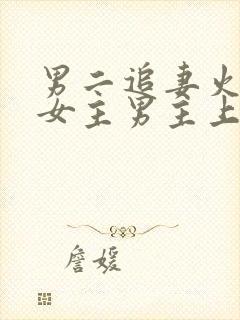 男二追妻火
女主男主上
詹媛